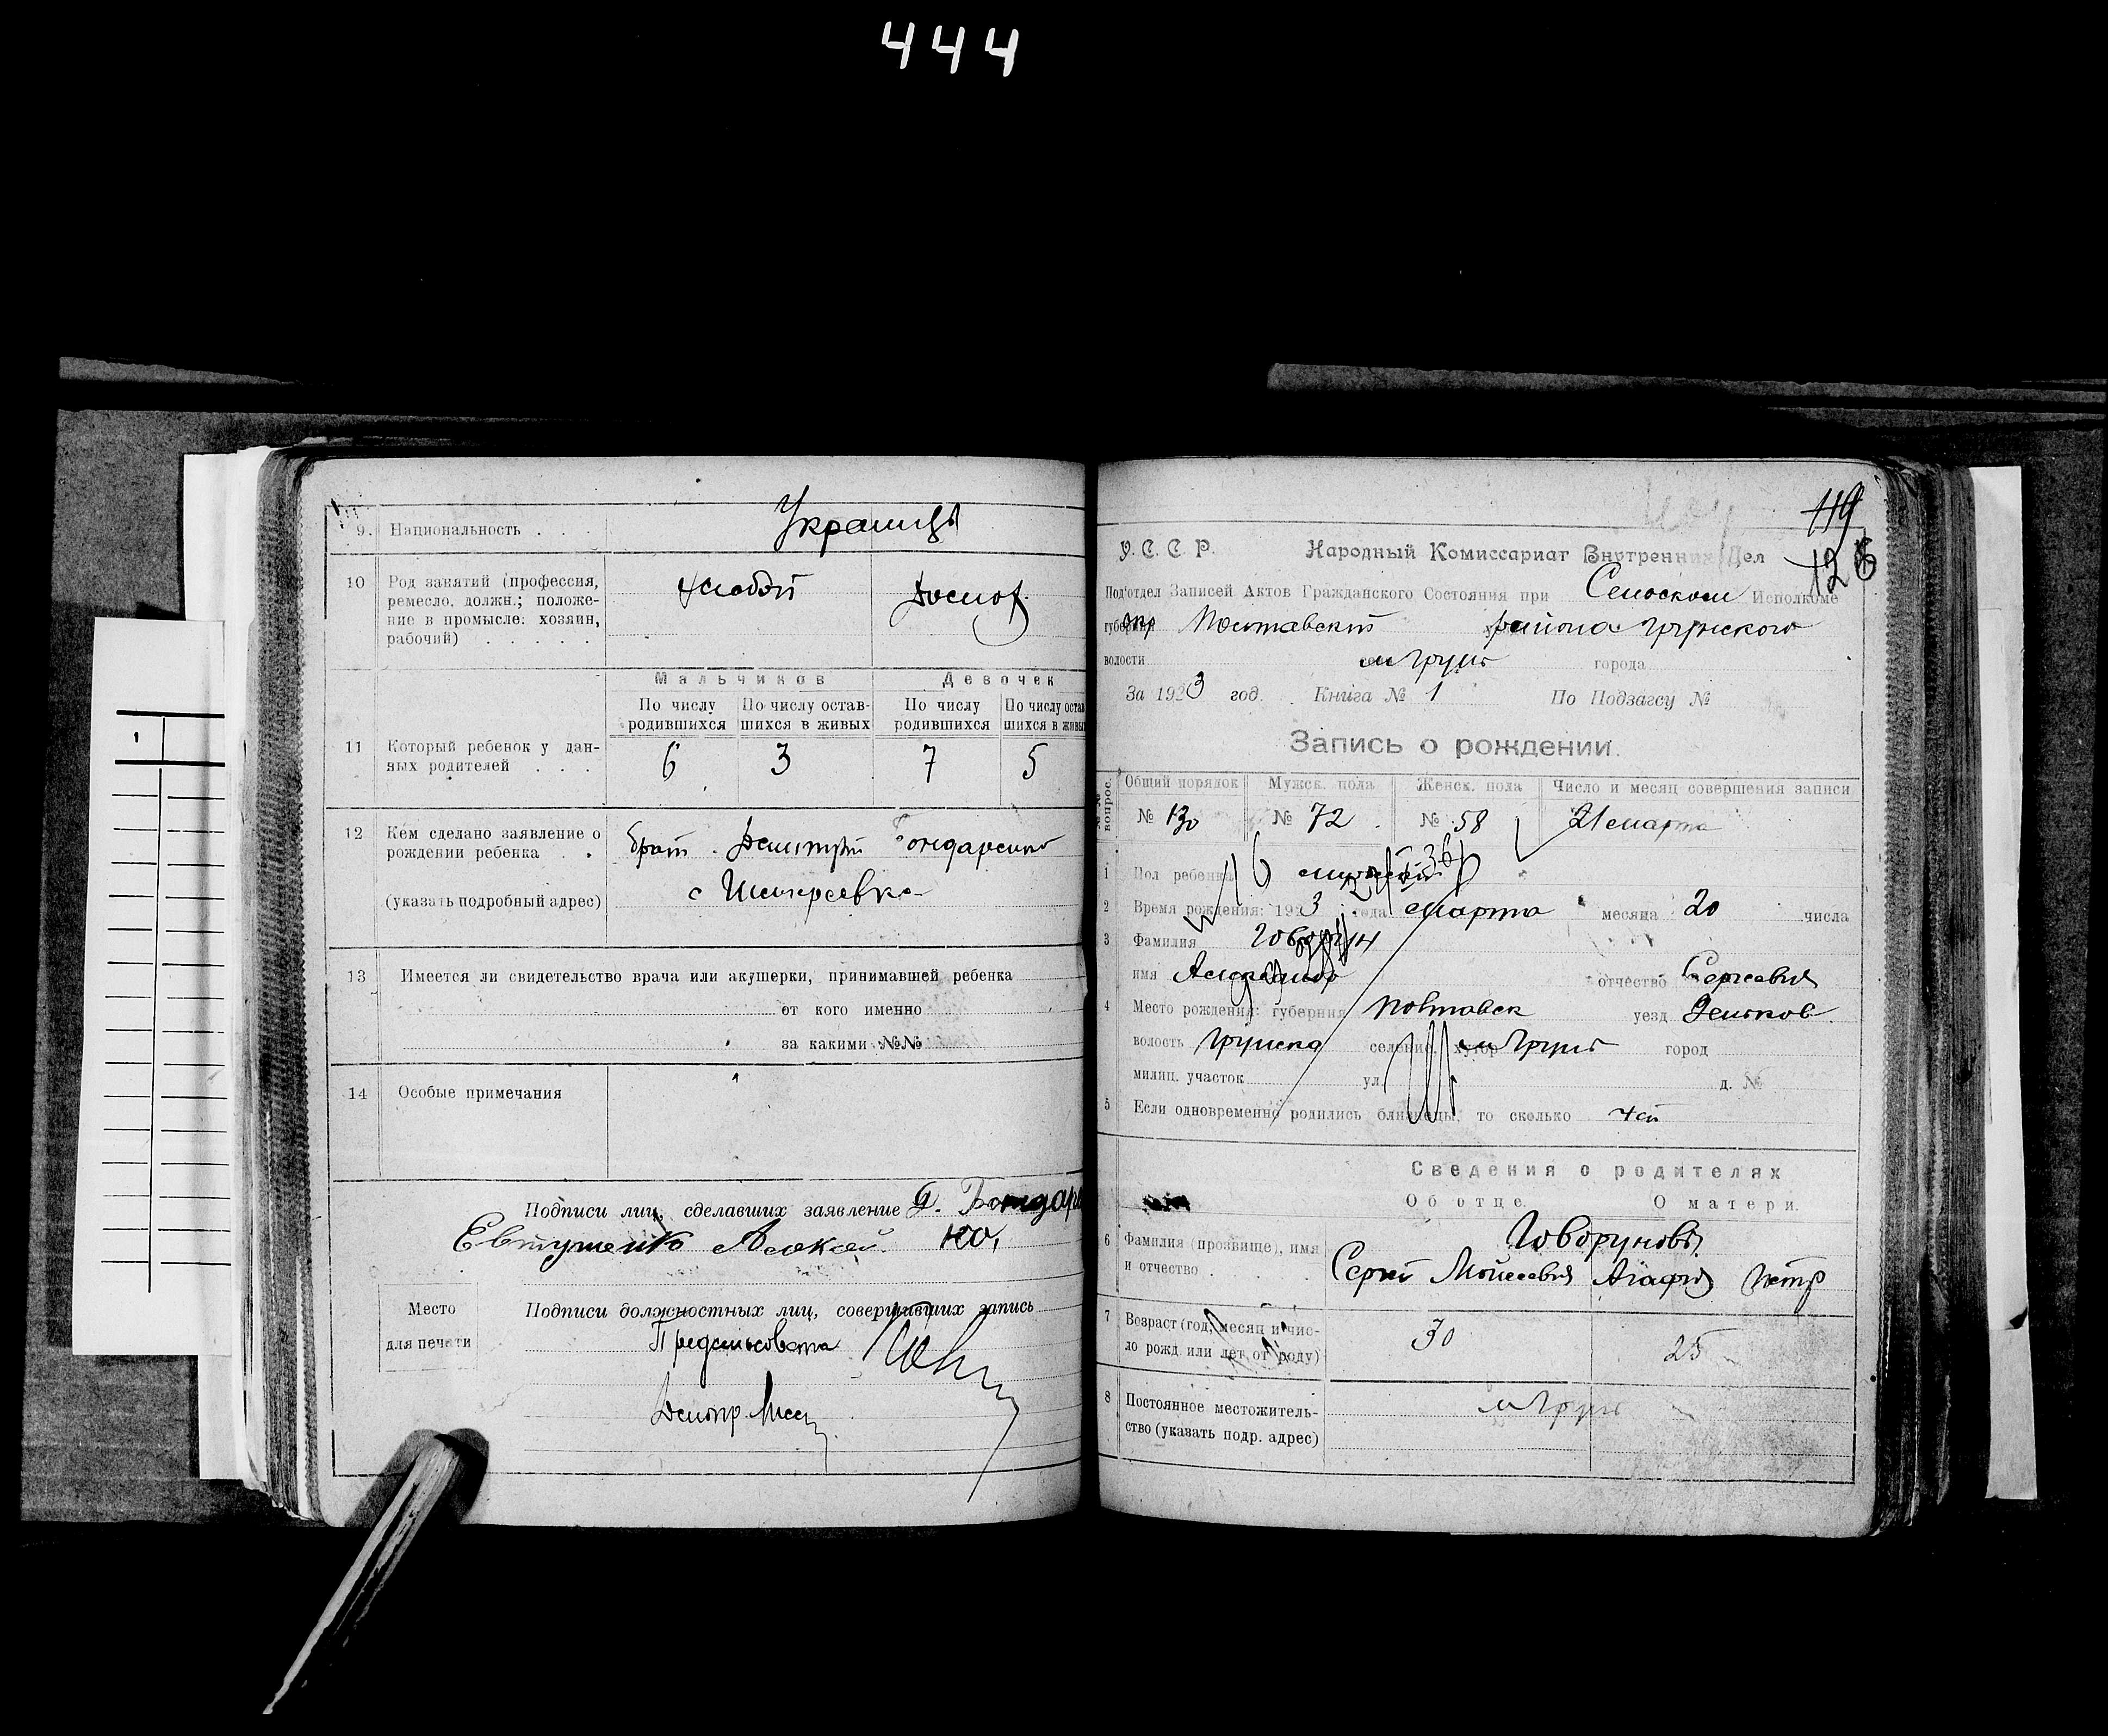 444
9. Национальность . . .
Украинцы
10 Род занятий (профессия,
ремесло, должн.; положе-
ние в промысле: хозяин,
рабочий) . . . . .
Мальчиков Девочек
По числу родившихся
По числу остав-
шихся в живых
По числу родившихся
По числу остав
шихся в живы
11 Который ребенок у дан-
ных родителей . . .
6 3 7 5
12 Кем сделано заявление о
рождении ребенка . .
(указать подробный адрес)
брат Дмитрий Бондаренко
с
13 Имеется ли свидетельство врача или акушерки, принимавшей ребенка
от кого именно
за какими №№
14 Особые примечания
Подписи лиц, сделавших заявление Бондарен
Евтушенко Алексей. ко,
Место
для печати
Подписи должностных лиц, совершивших запись
Предсельсовета
119
126
У. С. С. Р. Народный Комиссариат Внутренних Дел
Под'отдел Записей Актов Гражданского Состояния при Исполкоме
губернии окр Полтавский района Грунского
волости м Грунь города
За 1923 год. Книга № 1 По Подзагсу №
Запись о рождении.
№№ вопрос.
Общий порядок Мужск. пола Женск. пола Число и месяц совершения записи
№ 130 № 72 № 58 21 марта
1 Пол ребенка мужской
2 Время рождения: 1923 года марта месяца 20 числа
3 Фамилия Говорун
имя Александр отчество Сергеевич
4 Место рождения: губерния Полтавск уезд Зеньков
волость Грунска селение, хутор м Грунь город
милиц. участок ул. д. №
5 Если одновременно родились близнецы, то сколько
Сведения о родителях
Об отце. О матери.
6 Фамилия (прозвище), имя
и отчество . . . .
Говоруновы
Сергей Мойсеевич Агафия Петр
7 Возраст (год, месяц и чис-
ло рожд. или лет от роду)
30 25
8 Постоянное местожитель-
ство (указать подр. адрес)
м Грунь